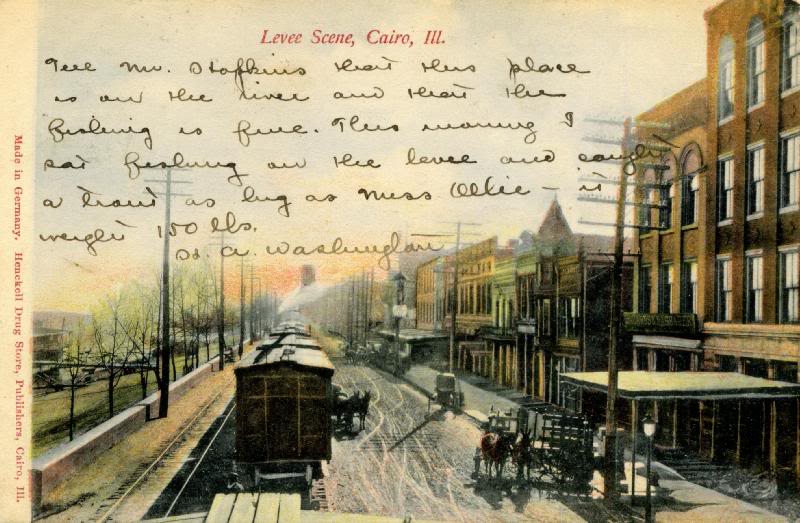 Levee Scene, Cairo, Ill.
Tell Mr. Hopkins that this place
is on the river and that the
fishing is fine. This morning I
sat fishing on the levee and caught
a trout as big as Miss Ollie - it
weight 150 lbs.
G. A. Washington
Made in Germany. Henckell Drug Store, Publishers, Cairo, Ill.